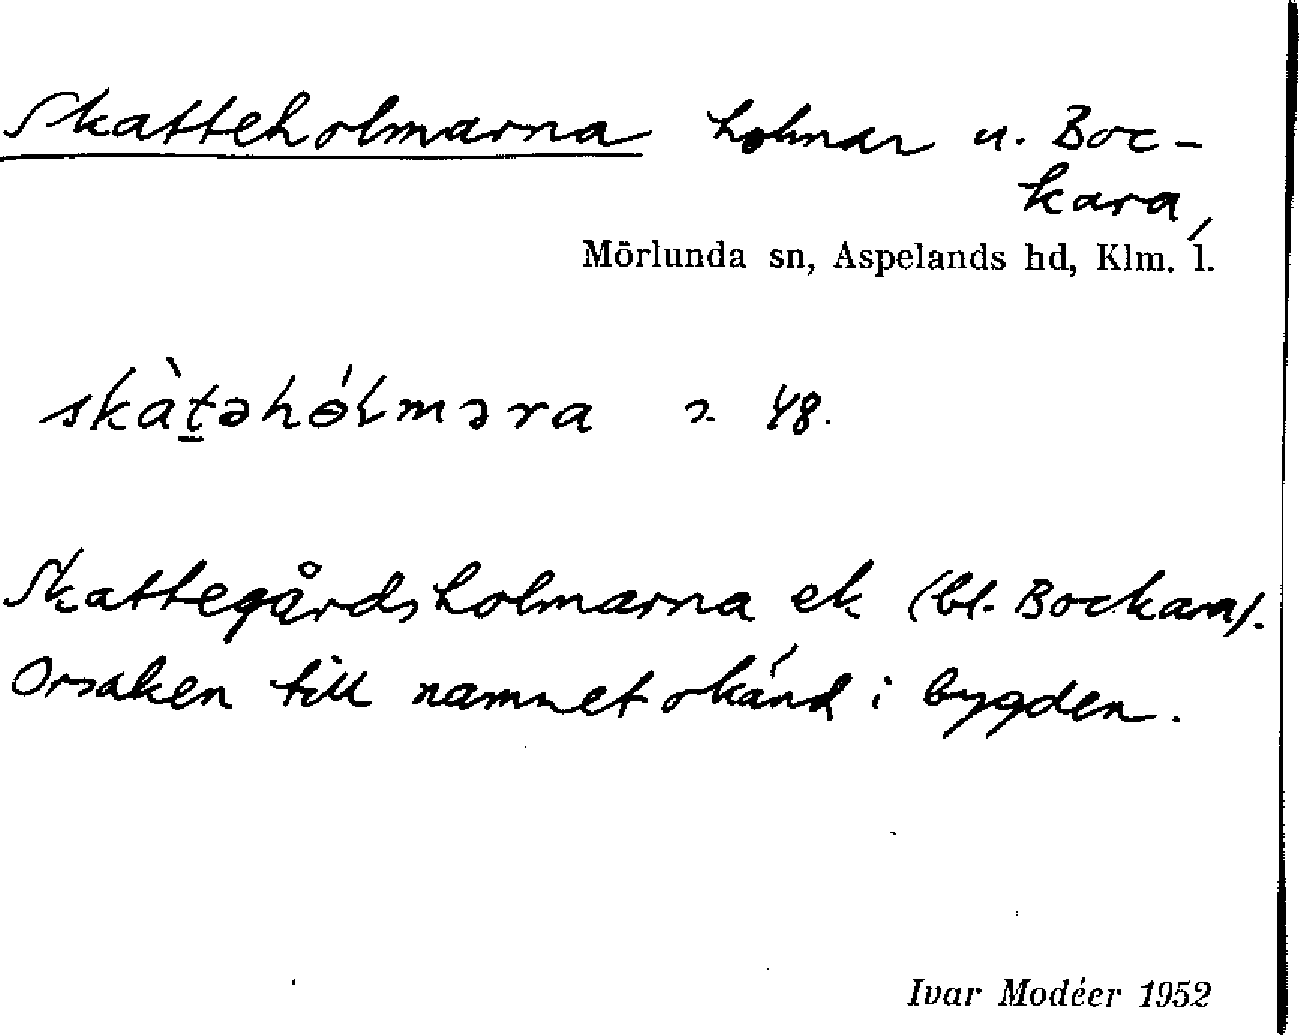 Skatteholmarna holmar u. Boc-
kara,
Mörlunda sn, Aspelands hd, Klm. l.
skàt̲əhólməra 2 48.
Skattegårdsholmarna ek (bl. Bockara).
Orsaken till namnet okänd i bygden.
Ivar Modéer 1952